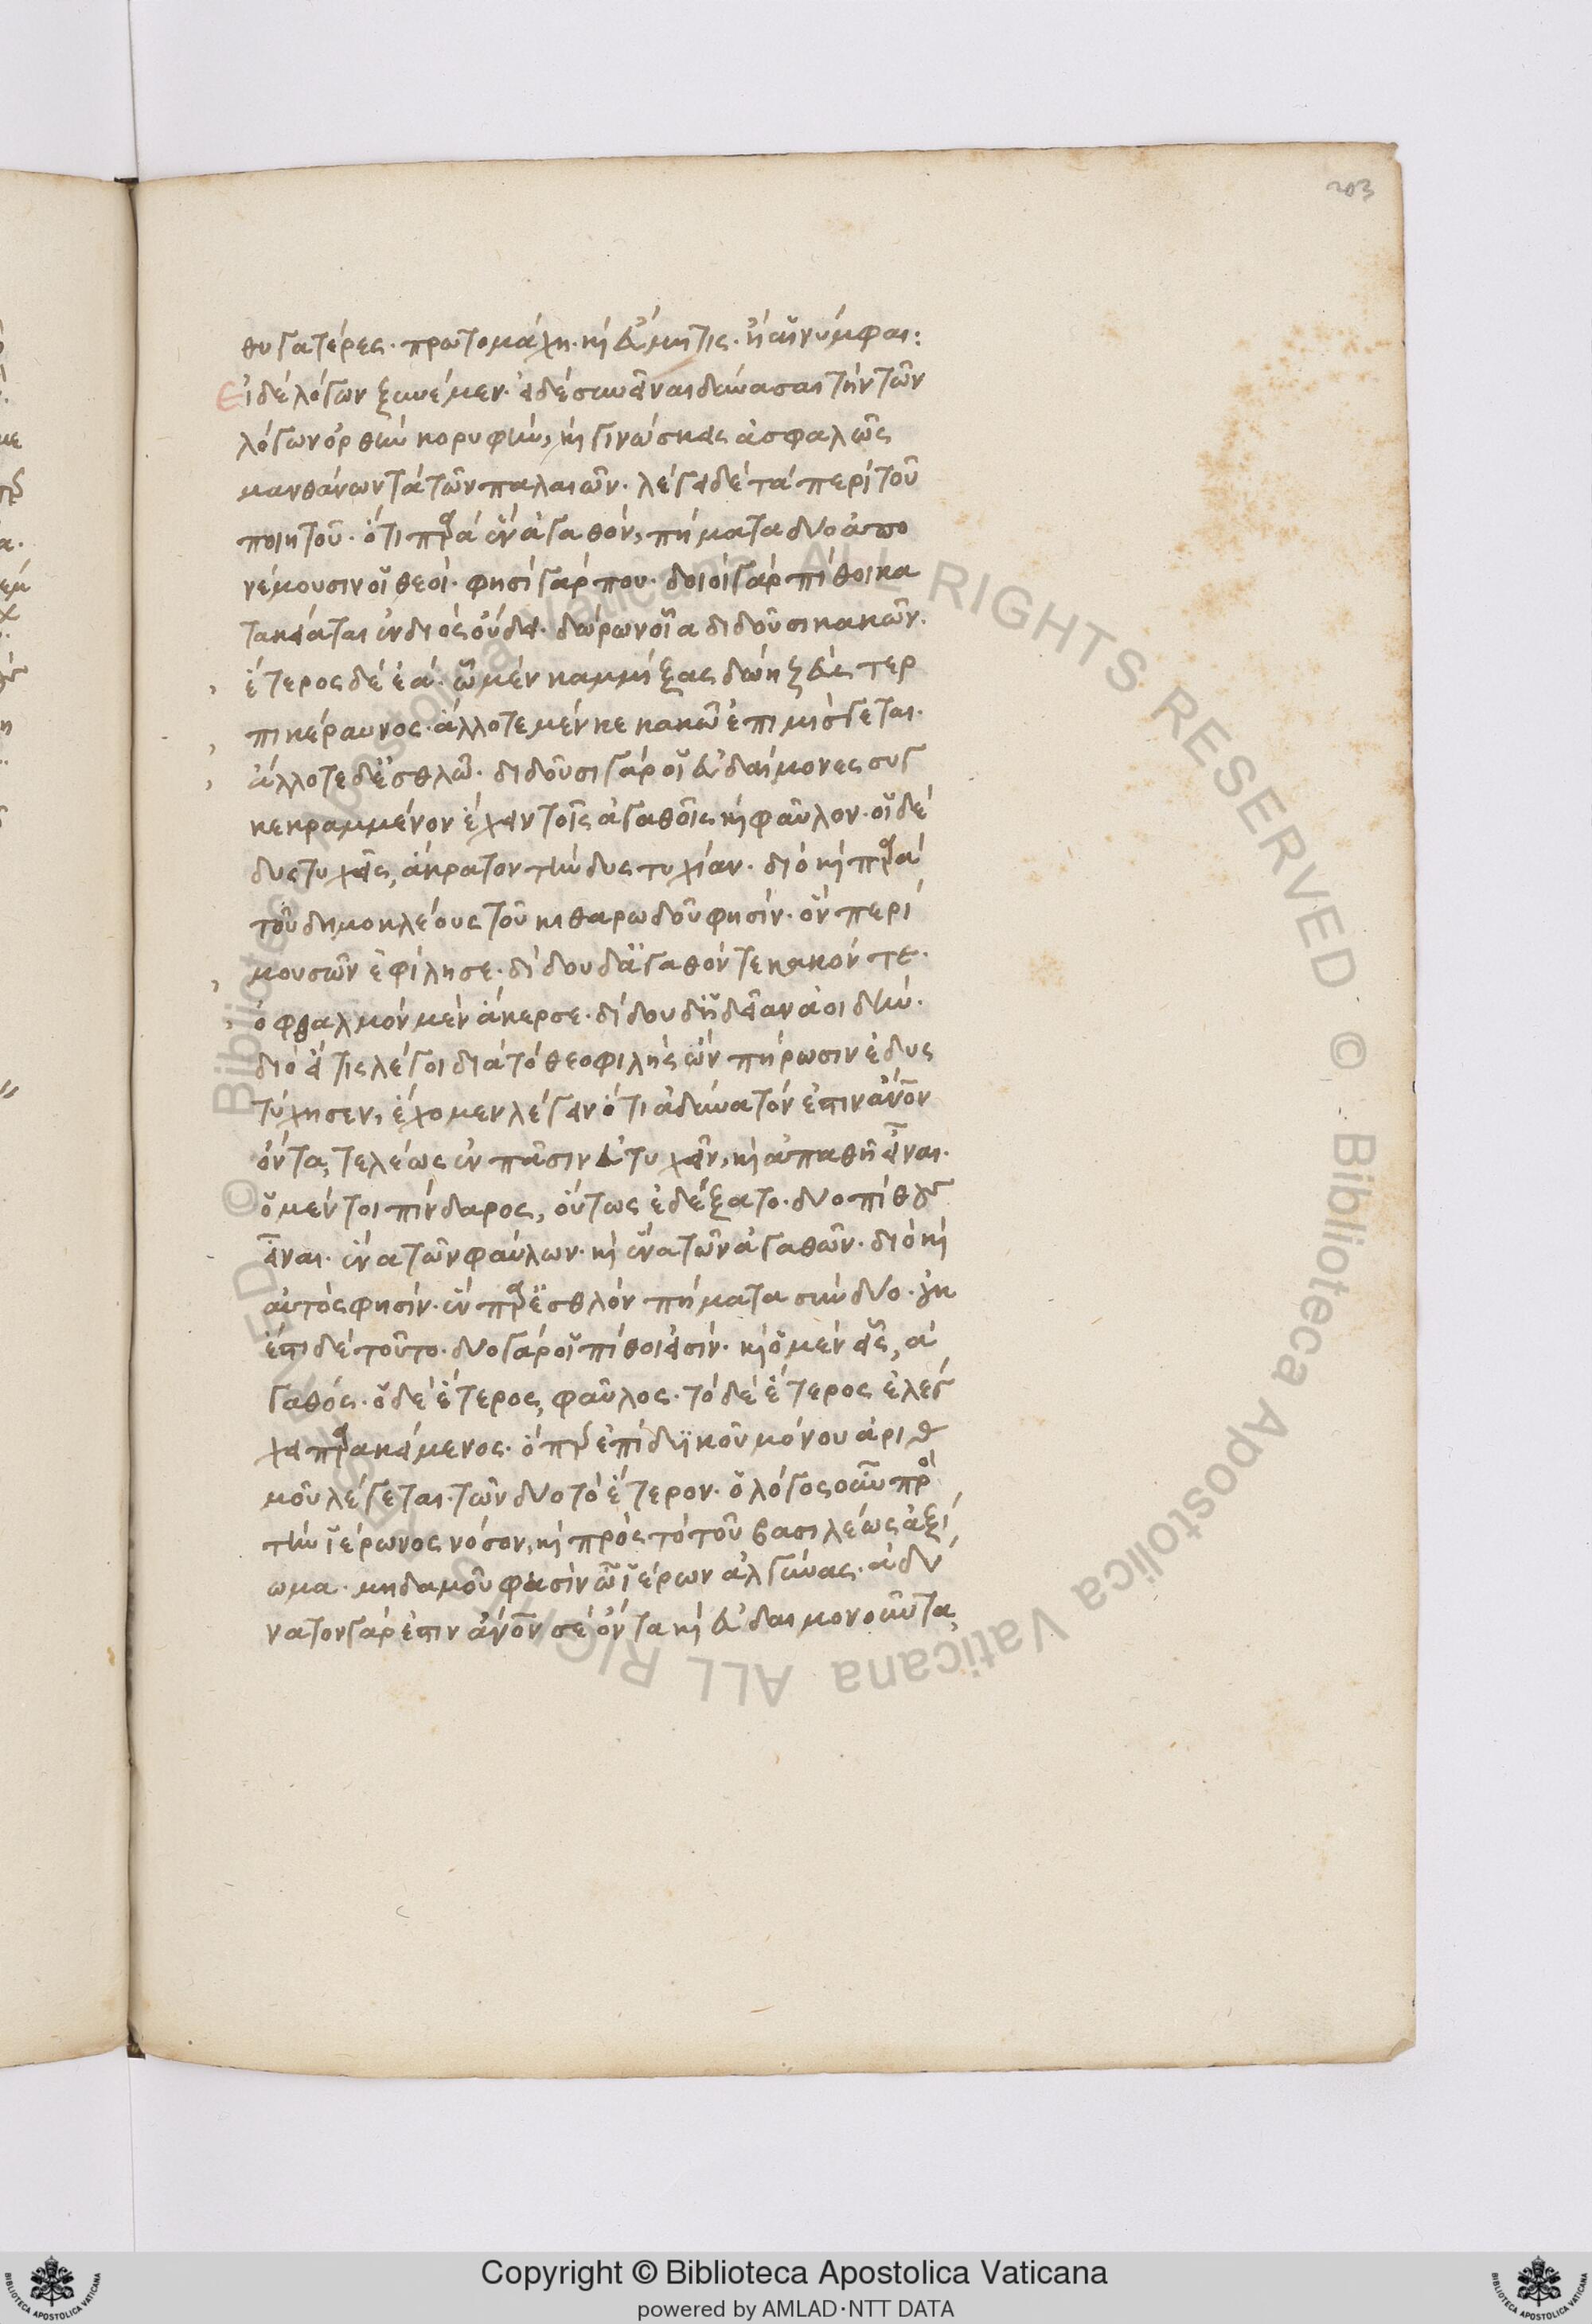 203
θυγατέρες· πρωτομάχη· καὶ εὔμητις· ἢ αἱ νύμφαι:
Εἰ δὲ λόγων ξυνέμεν· εἰ δέ συ εἶναι δύνασαι τὴν τῶν
λόγων ὀρθὴν κορυφὴν, καὶ γινώσκεις ἀσφαλῶς
μανθάνων τὰ τῶν παλαιῶν· λέγει δὲ τὰ περὶ τοῦ
ποιητοῦ· ὅτι παρὰ ἓν ἀγαθὸν, πήματα δύο ἀπο
νέμουσιν οἱ θεοί· φησὶ γάρ που· δοιοὶ γάρ πίθοι κα
τακείαται ἐν διὸς οὔδει· δώρων οἷα διδοῦσι κακῶν·
ἕτερος δὲ ἑά· ᾧ μέν καμμίξας δώῃ ζεὺς τερ
πικέραυνος· ἄλλοτε μέν κε κακῷ ἐπιμίσγεται·
ἄλλοτε δ' ἐσθλῷ· διδοῦσι γάρ οἱ εὐδαίμονες συγ
κεκραμμένον ἔχειν τοῖς ἀγαθοῖς καὶ φαῦλον· οἱ δὲ
δυστυχεῖς, ἄκρατον τὴν δυστυχίαν· διὸ καὶ παρὰ
τοῦ δημοκλέους τοῦ κιθαρωδοῦ φησίν· ὃν περὶ
μουσῶν ἐφίλησε· δίδου δ' ἀγαθόν τε κακόν τε·
ὀφθαλμὸν μὲν ἄκερσε· δίδου δ' ἡδεῖαν ἀοιδήν·
διὸ εἴ τις λέγοι διὰ τὸ θεοφιλὴς ὢν πήρωσιν ἐδυς
τύχησεν, ἔχομεν λέγειν ὅτι ἀδύνατόν ἐστιν ἄνον
ὄντα, τελέως ἐν πᾶσιν εὐτυχεῖν, καὶ ἀπαθῆ εἶναι·
ὁ μέντοι πίνδαρος, οὕτως ἐδέξατο· δύο πίθους
εἶναι· ἕνα τῶν φαύλων· καὶ ἕνα τῶν ἀγαθῶν· διὸ καὶ
αὐτός φησίν· ἓν παρ' ἐσθλὸν πήματα σύν δύο· οὐκ
ἔστι δὲ τοῦτο· δύο γάρ οἱ πίθοι εἰσίν· καὶ ὁ μὲν εἷς, ἀ
γαθός· ὁ δὲ ἕτερος, φαῦλος· τὸ δὲ ἕτερος ἐλέγ
χει παρακείμενος· ὅπερ ἐπὶ δυϊκοῦ μόνου ἀριθ
μοῦ λέγεται· τῶν δύο τὸ ἕτερον· ὁ λόγος οὖν πρὸς
τὴν ἱέρωνος νόσον, καὶ πρὸς τὸ τοῦ βασιλέως ἀξί
ωμα· μηδαμοῦ φασὶν ὦ ἱέρων ἀλγύνας· ἀδύ
νατον γάρ ἐστιν ἄνον σὲ ὄντα καὶ εὐδαιμονοῦντα,
Copyright © Biblioteca Apostolica Vaticana
powered by AMLAD·NTT DATA